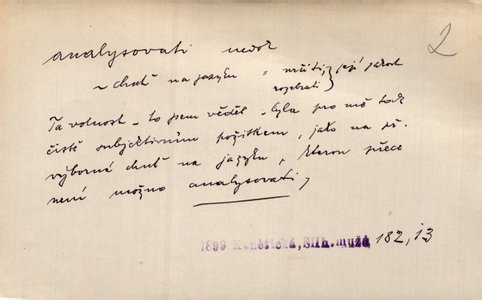 analysovati nedok
2
~ chuť na jazyku = určiti, její jakost
rozebrati
Ta volnost – to jsem věděl – byla pro mě tak
čistě subjektivním požitkem, jako na př.
výborná chuť na jazyku, kterou přece
není možno analysovati,
1899 M., Silh. mužů 182,13